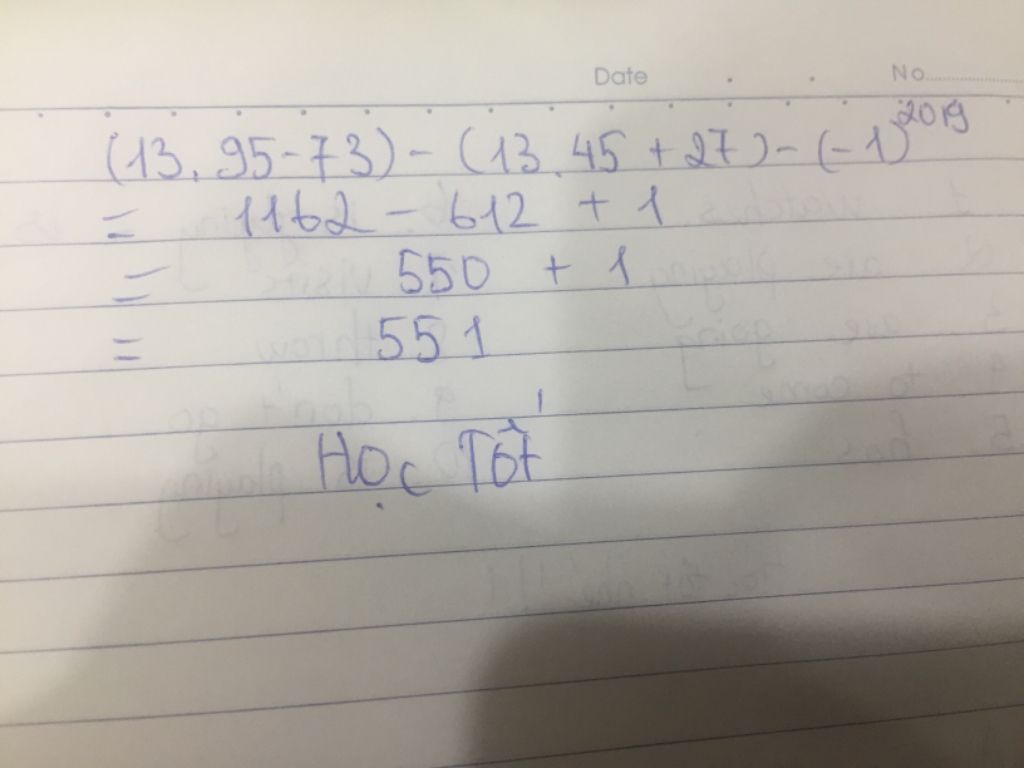 Date No
(13.95-73) - (13.45 + 27) - (-1)²⁰¹⁹
= 1162 - 612 + 1
= 550 + 1
= 551
Học Tốt